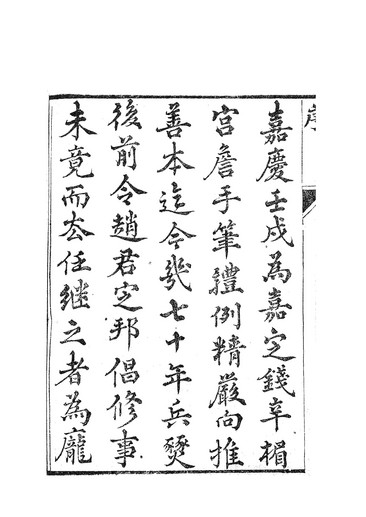 序
嘉慶壬戌為嘉定錢辛楣
宮詹手筆體例精嚴向推
善本迄今幾七十年兵燹
後前令趙君定邦倡修事
未竟而去任繼之者為龐